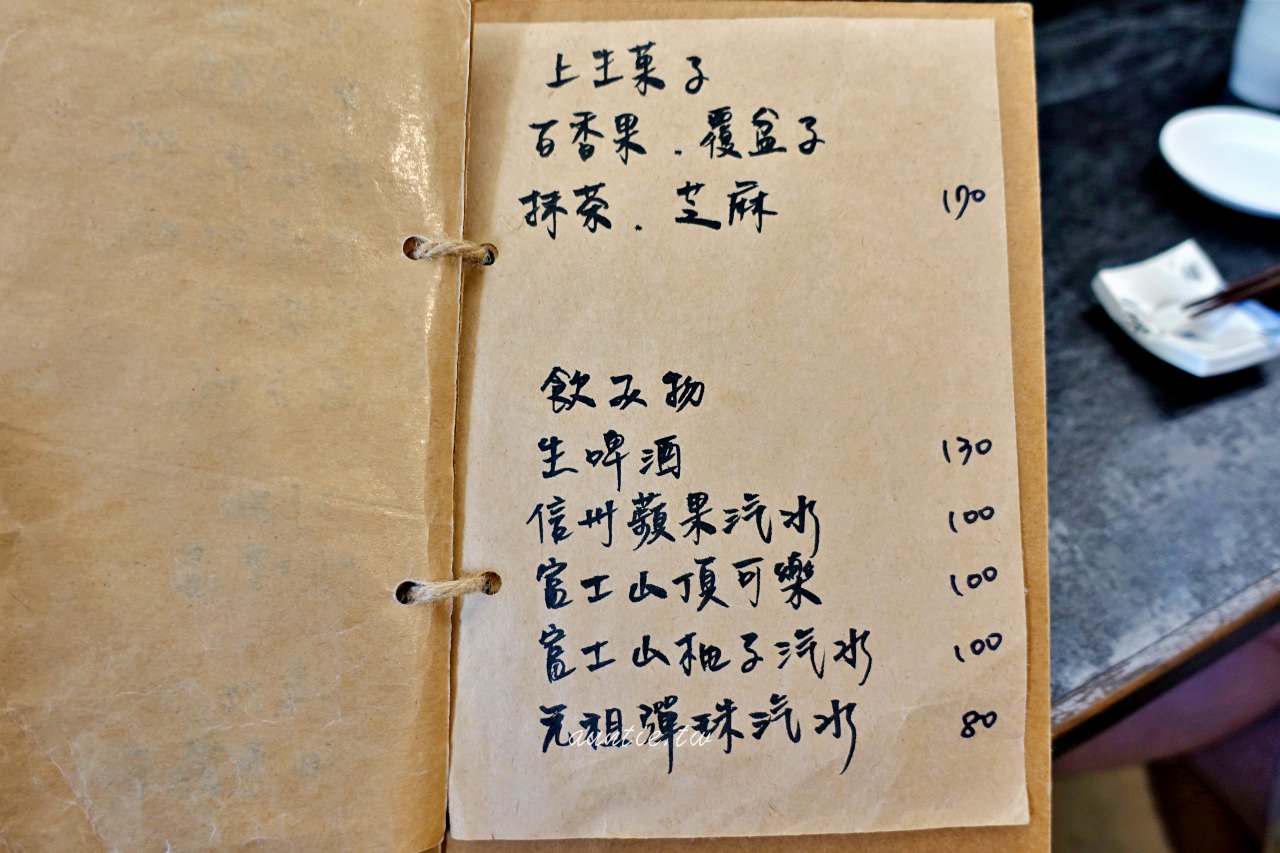 上生菓子
百香果.覆盆子
抹茶.芝麻 170
飲み物
生啤酒 130
信州蘋果汽水 100
富士山頂可樂 100
富士山柚子汽水 100
元祖彈珠汽水 80
auntie.tw